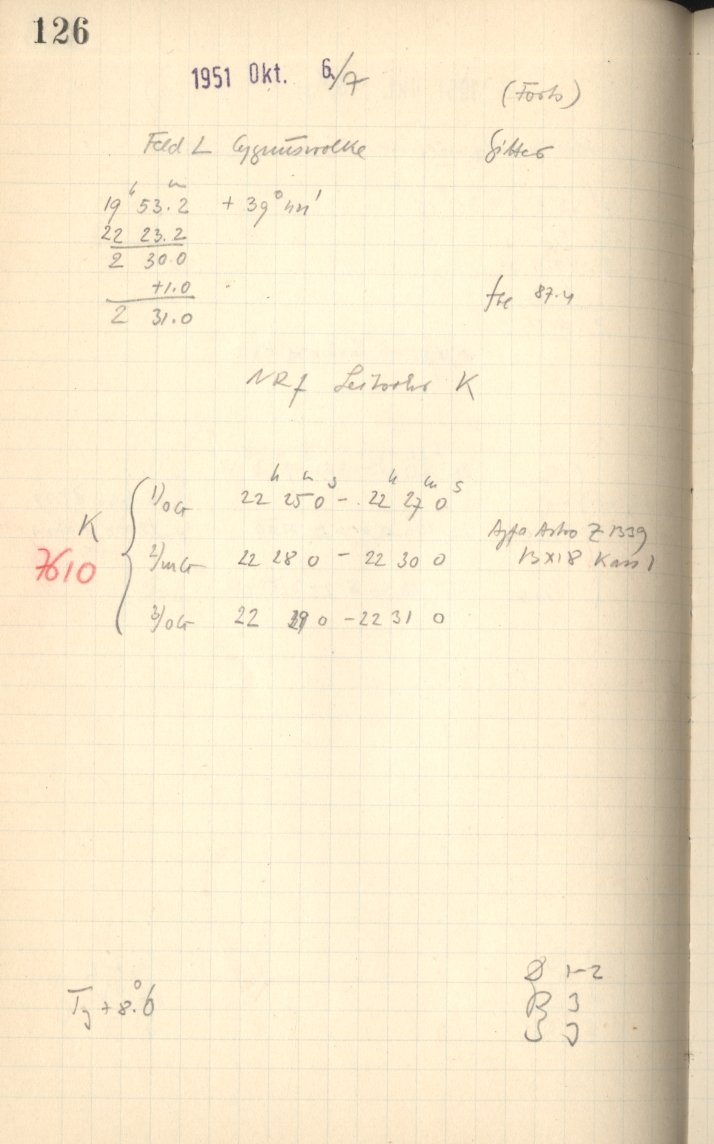 126
1951 Okt. 6/7
(Forts)
Feld L Cygnuswolke Gitter
19h 53m.2 + 39° 44'
22 23.2
2 30.0
+1.0
2 31.0
87.4
NRf Leitrohr K
K
7610
1) oG 22h 25m 0s - 22h 27m 0s
2) mG 22 28 0 - 22 30 0
3) oG 22 0 - 22 31 0
Agfa Astro Z 1339
13x18 Kass 1
+8°.6
1-2
3
3